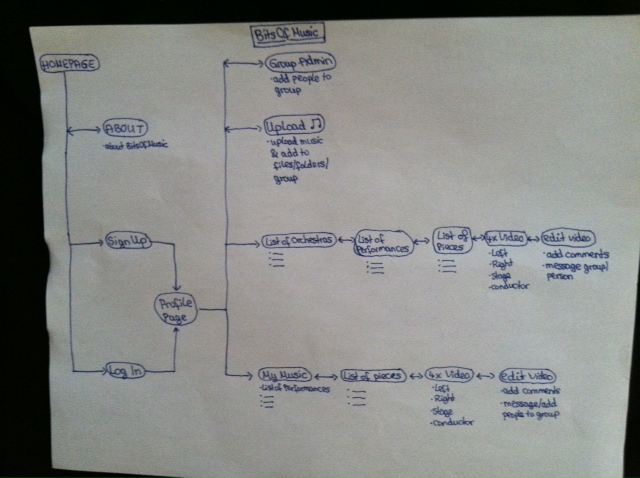 BitsOfMusic
HOMEPAGE
ABOUT
·about BitsOfMusic
Sign Up
Profile
Page
Log In
Group Admin
·add people to
group
Upload ♫
·upload music
& add to
files/folders/
group
List of Orchestras
List of
Performances
List of
Pieces
4x Video
·Left
·Right
·stage
·conductor
edit video
·add comments
·message group/
person
My Music
·List of Performances
List of pieces
4x Video
·Left
·Right
·stage
·conductor
edit video
·add comments
·message/add
people to group